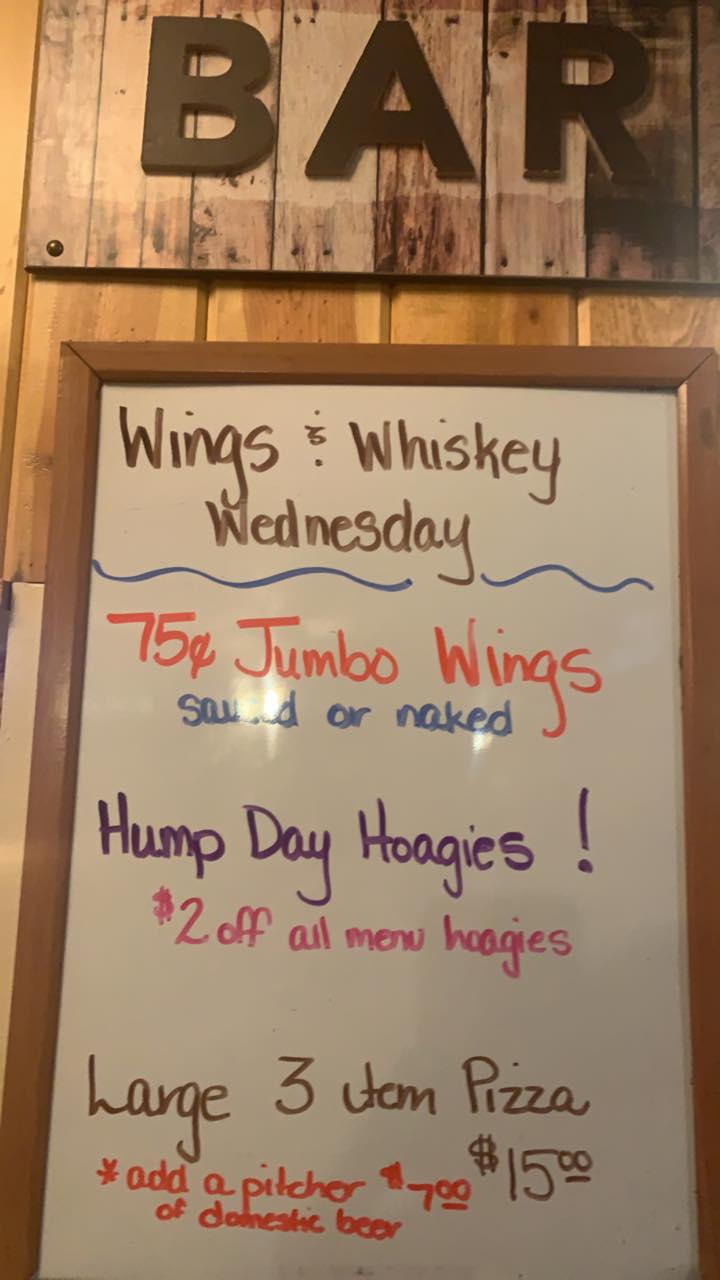 BAR
Wings & Whiskey
Wednesday
75¢ Jumbo Wings
sauced or naked
Hump Day Hoagies !
$2 off all menu hoagies
Large 3 item Pizza
$15.00
* add a pitcher $7.00
of domestic beer